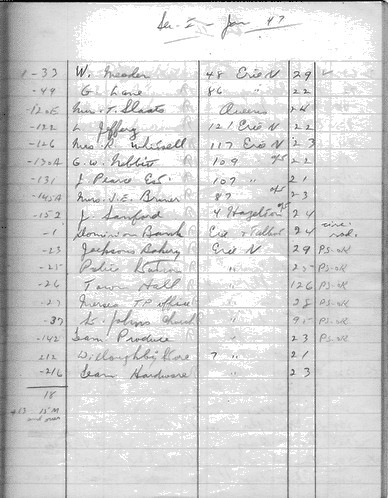 Sec. I - Jan 47
1-33 W. Meader R 48 Erie N 29
-49 G Lane R 86 " 22
-120B Mrs. T. Slaats R Queens 24
-122 L Jeffery R 121 Erie N 22
-126 Mrs. R. R 117 Erie N 23
-130A G. W. R 109 " o/s 22
-131 J Pearce Est. R 107 " 21
-145A Mrs. J. E. R 87 o/s 23
-152 J. Sanford R 4 Hazelton o/s 24
-1 Dominion Bank Erie & Talbot 24
-23 Jacksons Bakery Erie N 29 PS-OK
-25 Police Station " PS-OK
-26 Town Hall R " 126 PS-OK
-27 Mersea TP office " 28 PS-OK
-37 St. Johns Church R " 95 PS-OK
-142 Leam Produce " 23 PS-OK
212 Willoughby Store 7 " 21
-216 Leam Hardware " 23
18